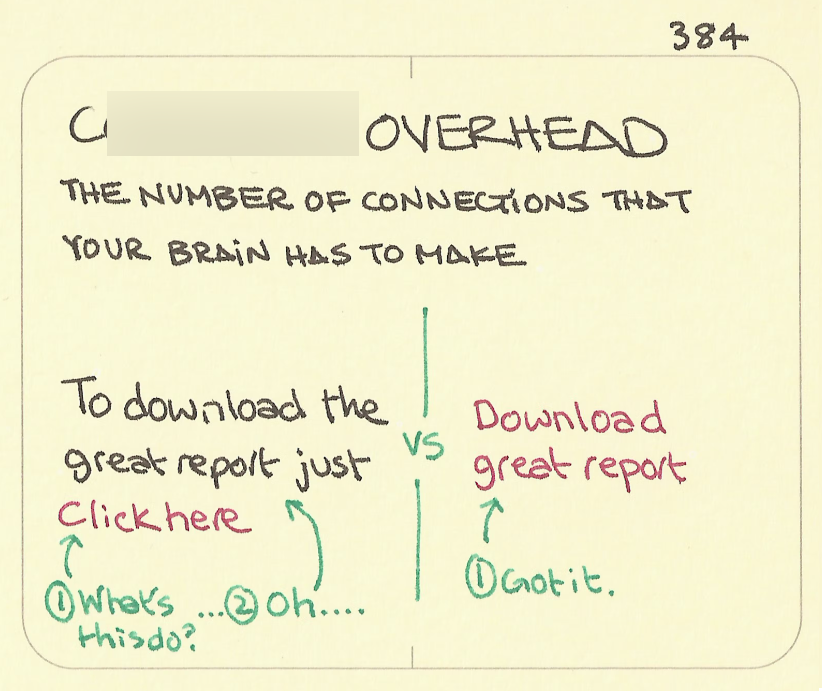 384
OVERHEAD
THE NUMBER OF CONNECTIONS THAT
YOUR BRAIN HAS TO MAKE
To download the
great report just
Click here
VS
Download
great report
① What's ...② Oh....
this do?
① Got it.